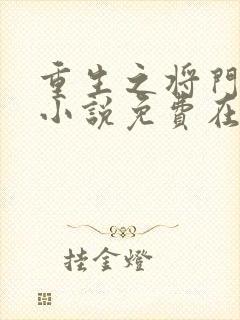 重生之将門
小説免費在
挂金燈